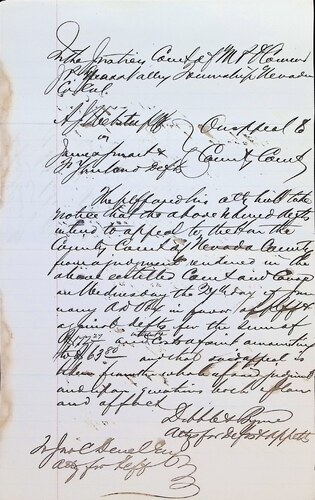 In the Justices Court of M P O'Connor
J.P. Grass Valley Township Nevada
Co Cal.
A J Webster Plff
vs
James Smart &
Defts
On appeal to
County Court
The plff and his atty will take
notice that the above named defts
intend to appeal to the Hon the
County Court of Nevada County
from a judgment rendered in the
above entitled Court and Cause
on Wednesday the 27th day of Jan
uary AD 1864 in favor of plff &
against defts for the sum of
and Costs of suit amounting
to $63.80 and that said appeal is
taken from the whole of said judgment
and also questions both of law
and of fact
Dibble & Byrne
Attys for Defts & Appts
To Jno C Deuel Esq
Atty for Plff